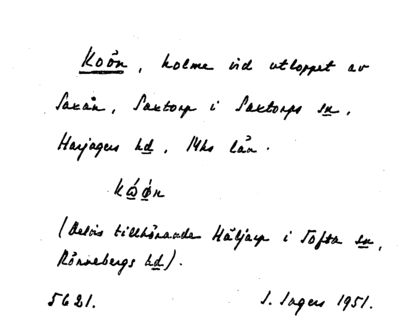 Koön, holme vid utloppet av
Saxån, Saxtorp i Saxtorps sn,
Harjagers hd, Mhs län.
kὼǿn
(Delvis tillhörande Häljarp i Tofta sn,
Rönnebergs hd).
5621. S. Ingers 1951.